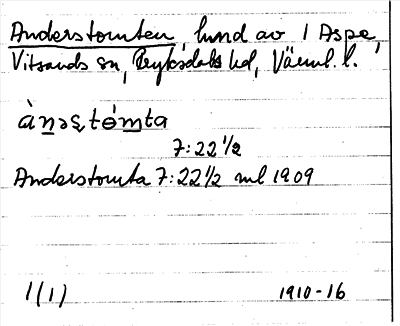 Anderstomten, lund av 1 Aspe,
Vitsands sn, Fryksdals hd, Värml. l.
àn̲əʂtómt̲a
7:22 1/2
Anderstomta 7:22 1/2 ml 1909
1(1) 1910-16